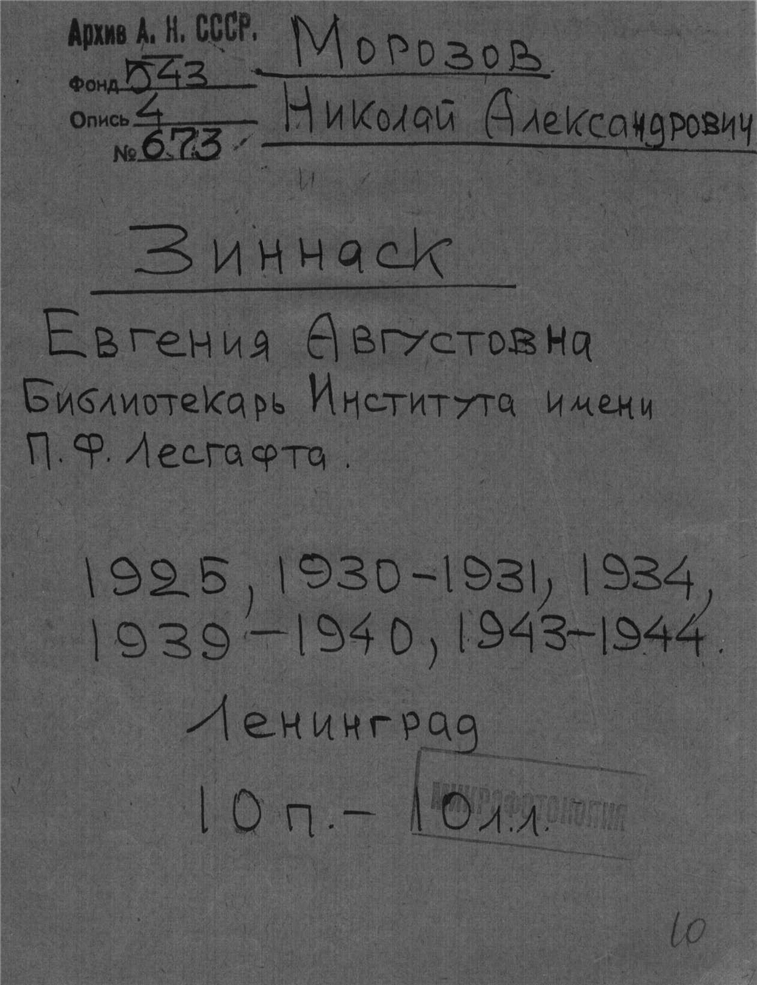 Архив А. Н. СССР.
Фонд 543
Опись 4
№ 673
Морозов
Николай Александрович
Зиннаск
Евгения Августовна
Библиотекарь Института имени
П. Ф. Лесгафта.
1925, 1930-1931, 1934,
1939-1940, 1943-1944.
Ленинград
10 п. - 10 л.л.
МИКРОФОТОКОПИЯ
10